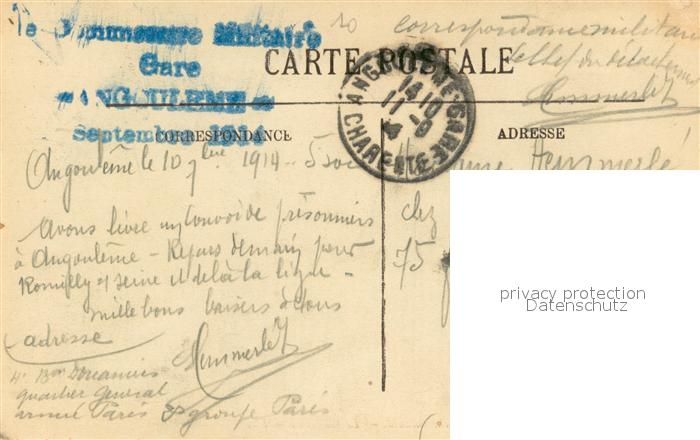 Le Commissaire Militaire
Gare
ANGOULEME
Septembre 1914
correspondance militaire
le chef du détachement
Hemmerlé
CARTE POSTALE
ANGOULEME GARE
14 10
11 - 9
CHARENTE
CORRESPONDANCE
ADRESSE
Angoulême le 10 7bre 1914 - 5 soir
Avons livré un convoi de prisonniers
à Angoulême - Repars demain pour
Romilly s/ seine et de là la ligne -
mille bons baisers à tous
Hemmerlé
adresse
4e Bon Douaniers
Quartier Général
armée Paris 3e groupe Paris
Hemmerlé
chez
75
privacy protection
Datenschutz